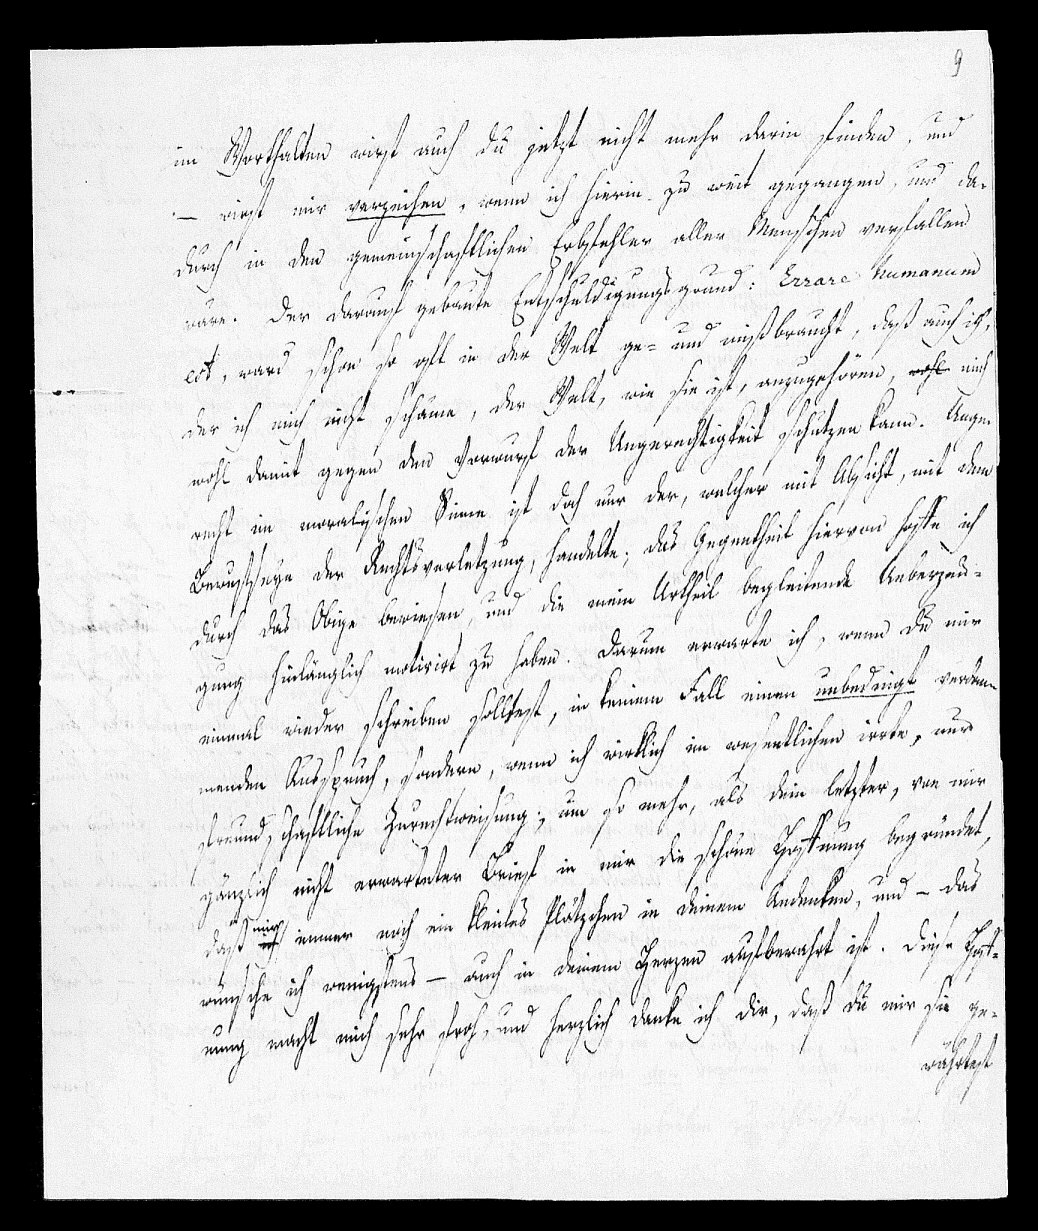 9
im Worthalten wirst auch Du jetzt nicht mehr darin finden, und
– wirst mir verzeihen, wenn ich hierin zu weit gegangen, und da-
durch in den gemeinschaftlichen Erbfehler aller Menschen verfallen
wäre. Der darauf gebaute Entschuldigungsgrund: Errare humanum
est, ward schon so oft in der Welt ge= und mißbraucht, daß auch ich,
der ich mich nicht schäme, der Welt, wie sie ist, anzugehören, wohl mich
wohl damit gegen den Vorwurf der Ungerechtigkeit schützen kann. Unge-
recht im moralischen Sinne ist doch nur der, welcher mit Absicht, mit dem
Bewußtseyn der Rechtsverletzung, handelte; das Gegentheil hiervon hoffe ich
durch das Obige bewiesen, und die mein Urtheil begleitende Ueberzeu-
gung hinlänglich motivirt zu haben. Darum erwarte ich, wenn Du mir
einmal wieder schreiben solltest, in keinem Fall einen unbedingt verdam-
menden Ausspruch, sondern, wenn ich wirklich im wesentlichen irrte, nur
freundschaftliche Zurechtweisung; um so mehr, als dein letzter, von mir
gänzlich nicht erwarteter Brief in mir die schöne Hoffnung begründet,
daß mir immer noch ein kleines Plätzchen in deinem Andenken, und – das
wünsche ich wenigstens – auch in deinem Herzen aufbewahrt ist. Diese Hoff-
nung macht mich sehr froh, und herzlich danke ich dir, daß du mir sie ge-
währtest